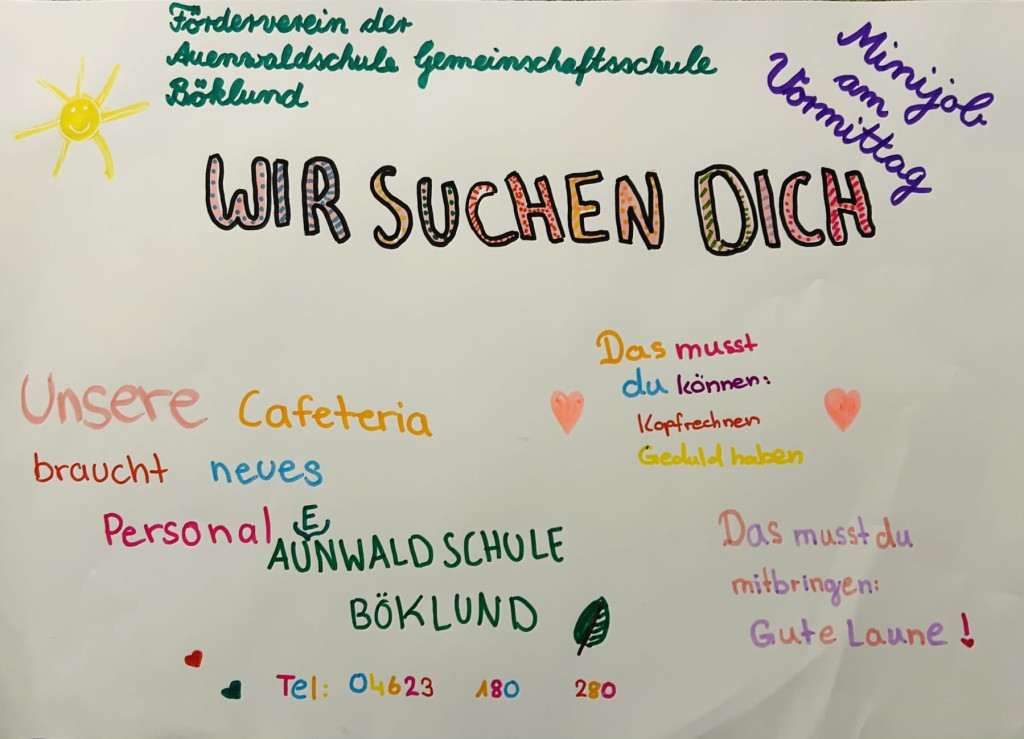 Förderverein der
Auenwaldschule Gemeinschaftsschule
Böklund
Minijob
am
Vormittag
WIR SUCHEN DICH
Unsere Cafeteria
braucht neues
Personal
Das musst
du können:
Kopfrechnen
Geduld haben
AUENWALDSCHULE
BÖKLUND
Das musst du
mitbringen:
Gute Laune!
Tel: 04623 180 280